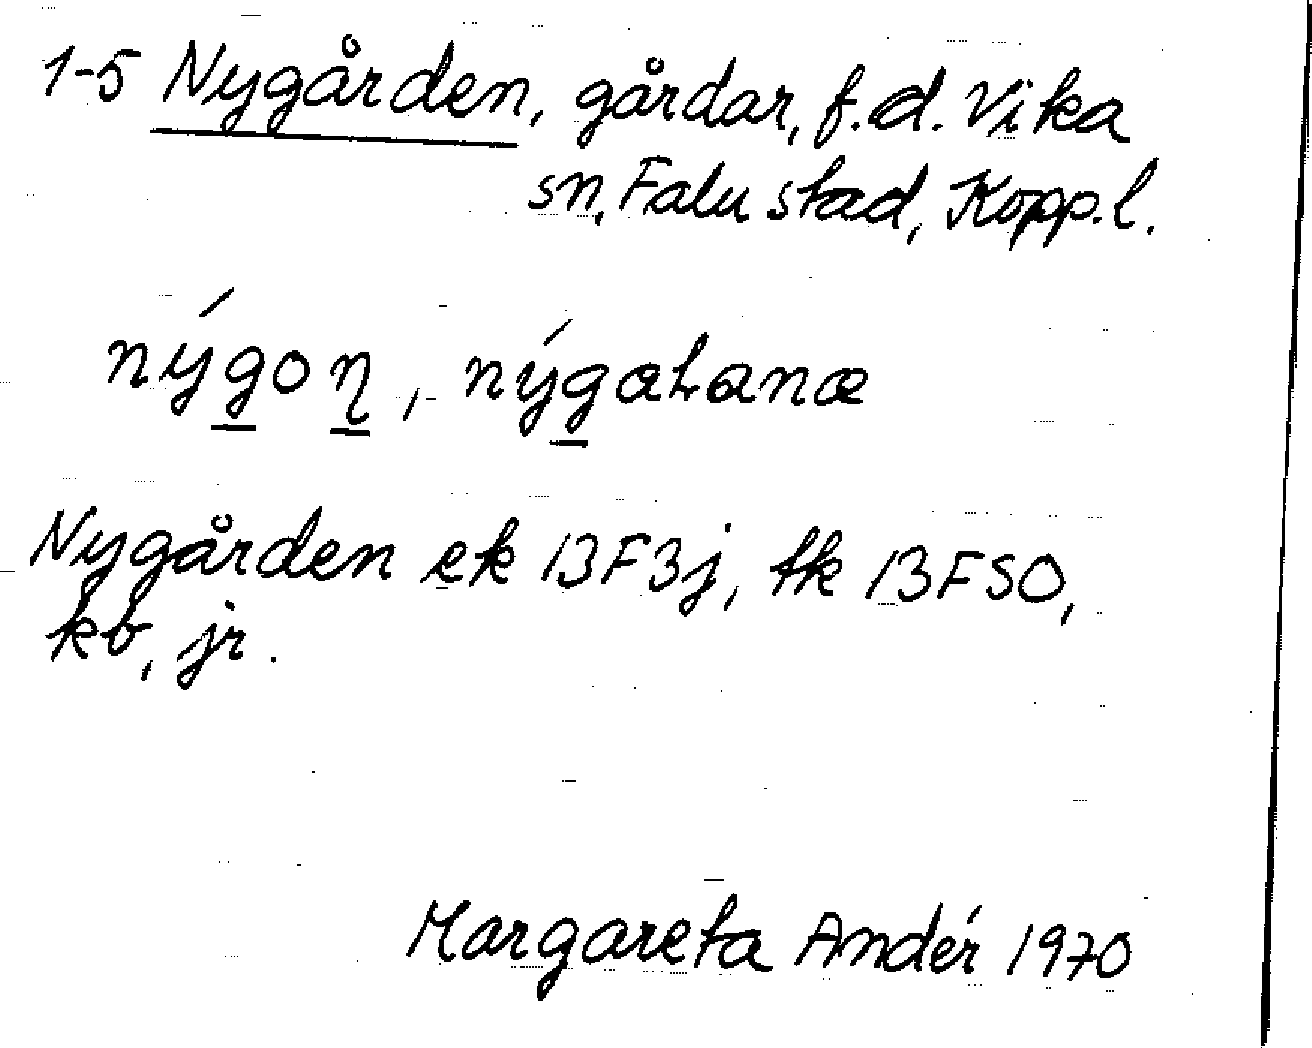 1-5 Nygården, gårdar, f.d. Vika
sn, Falu stad, Kopp.l.
nýgon, nýgaLana
Nygården ek 13F3j, tk 13FSO,
kb, jr.
Margareta Andér 1970